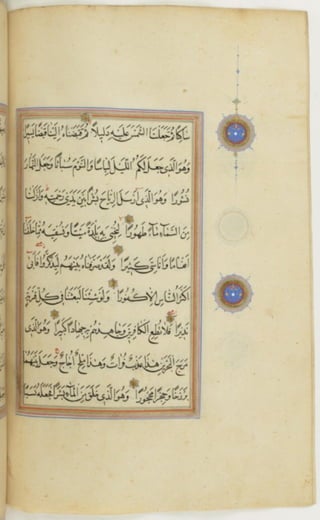 سَاكِنًا ثُمَّ جَعَلْنَا الشَّمْسَ عَلَيْهِ دَلِيلًا ثُمَّ قَبَضْنَاهُ إِلَيْنَا قَبْضًا يَسِيرًا
وَهُوَ الَّذِي جَعَلَ لَكُمُ اللَّيْلَ لِبَاسًا وَالنَّوْمَ سُبَاتًا وَجَعَلَ النَّهَارَ
نُشُورًا وَهُوَ الَّذِي أَرْسَلَ الرِّيَاحَ بُشْرًا بَيْنَ يَدَيْ رَحْمَتِهِ وَأَنْزَلْنَا
مِنَ السَّمَاءِ مَاءً طَهُورًا لِنُحْيِيَ بِهِ بَلْدَةً مَيْتًا وَنُسْقِيَهُ مِمَّا خَلَقْنَا
أَنْعَامًا وَأَنَاسِيَّ كَثِيرًا وَلَقَدْ صَرَّفْنَاهُ بَيْنَهُمْ لِيَذَّكَّرُوا فَأَبَى
أَكْثَرُ النَّاسِ إِلَّا كُفُورًا وَلَوْ شِئْنَا لَبَعَثْنَا فِي كُلِّ قَرْيَةٍ
نَذِيرًا فَلَا تُطِعِ الْكَافِرِينَ وَجَاهِدْهُمْ بِهِ جِهَادًا كَبِيرًا وَهُوَ الَّذِي
مَرَجَ الْبَحْرَيْنِ هَذَا عَذْبٌ فُرَاتٌ وَهَذَا مِلْحٌ أُجَاجٌ وَجَعَلَ بَيْنَهُمَا
بَرْزَخًا وَحِجْرًا مَحْجُورًا وَهُوَ الَّذِي خَلَقَ مِنَ الْمَاءِ بَشَرًا فَجَعَلَهُ نَسَبًا